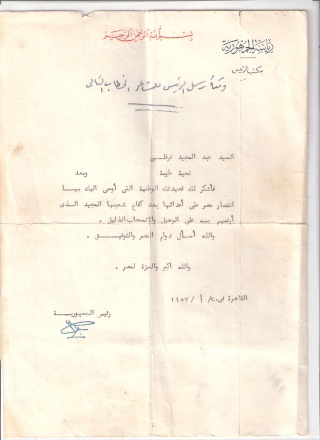 بسم الله الرحمن الرحيم
رياسة الجمهورية
مكتب الرئيس
وقد أرسل الرئيس للشاعر الخطاب التالى
السيد عبد المجيد فرغلى
تحية طيبة وبعد
فأشكر لك قصيدتك الوطنية التى أوحى اليك بها
انتصار مصر على أعدائها بعد كفاح شعبها المجيد الذى
أرغمهم به على الرحيل والانسحاب الذليل .
والله أسأل دوام النصر والتوفيق .
والله أكبر والعزة لمصر .
القاهرة فى ٢٠/ ١ / ١٩٥٧
رئيس الجمهورية